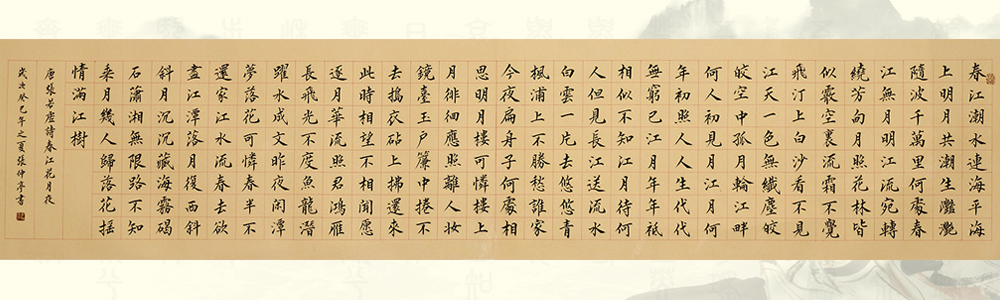 春江潮水連海平海
上明月共潮生灩灧
隨波千萬里何處春
江無月明江流宛轉
繞芳甸月照花林皆
似霰空裏流霜不覺
飛汀上白沙看不見
江天一色無纖塵皎
皎空中孤月輪江畔
何人初見月江月何
年初照人人生代代
無窮已江月年年祗
相似不知江月待何
人但見長江送流水
白雲一片去悠悠青
楓浦上不勝愁誰家
今夜扁舟子何處相
思明月樓可憐樓上
月徘徊應照離人妝
鏡臺玉戶簾中捲不
去搗衣砧上拂還來
此時相望不相聞愿
逐月華流照君鴻雁
長飛光不度魚龍潛
躍水成文昨夜閑潭
夢落花可憐春半不
還家江水流春去欲
盡江潭落月復西斜
斜月沉沉藏海霧碣
石瀟湘無限路不知
乘月幾人歸落花搖
情滿江樹
唐張若虛詩春江花月夜
歲次癸巳年之夏張仲亭書